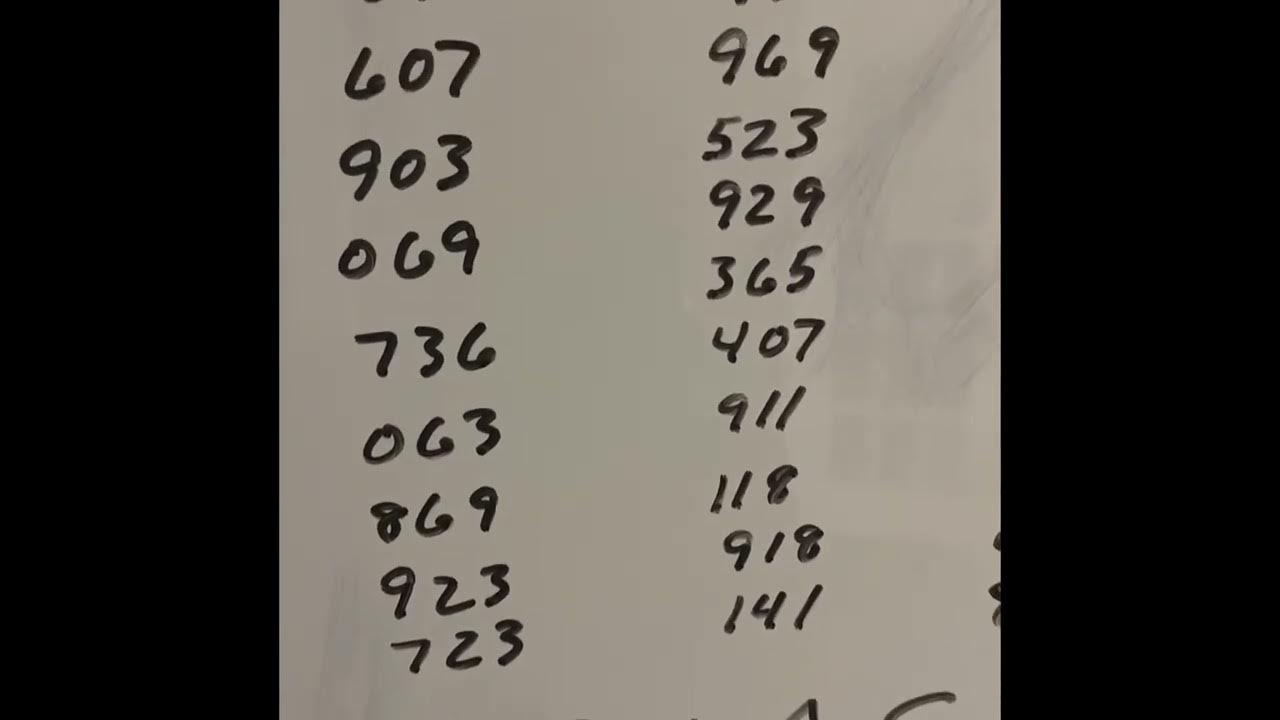 607
903
069
736
063
869
923
723
969
523
929
365
407
911
118
918
141